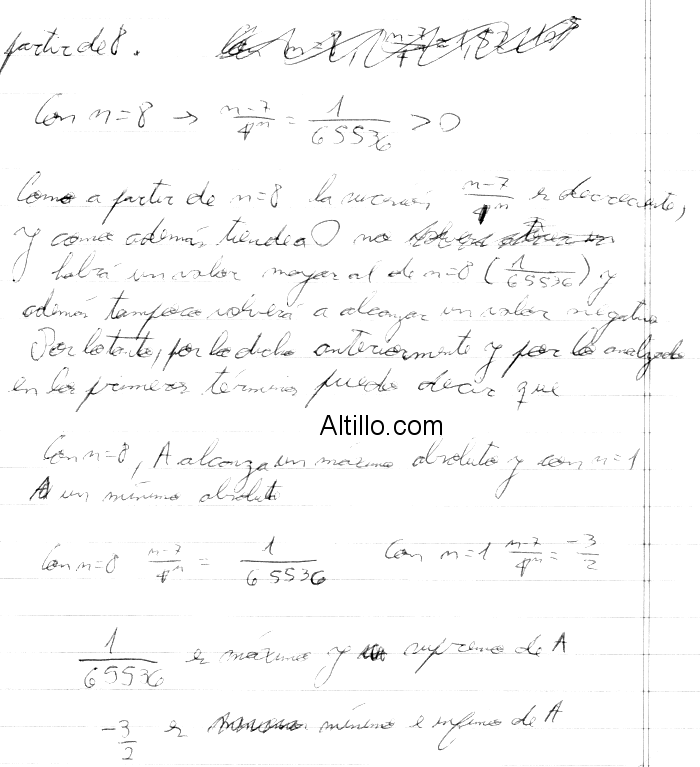 partir de 8.
Con n=8 → n-7/4^n = 1/65536 > 0
Como a partir de n=8 la sucesión n-7/4^n es decreciente,
y como además tiende a 0 no
habrá un valor mayor al de n=8 (1/65536) y
además tampoco volverá a alcanzar un valor negativo
Por lo tanto, por lo dicho anteriormente y por lo analizado
en los primeros términos puedo decir que
Altillo.com
Con n=8, A alcanza un máximo absoluto y con n=1
A un mínimo absoluto
Con n=8 n-7/4^n = 1/65536 Con n=1 n-7/4^n = -3/2
1/65536 es máximo y supremo de A
-3/2 es mínimo e ínfimo de A